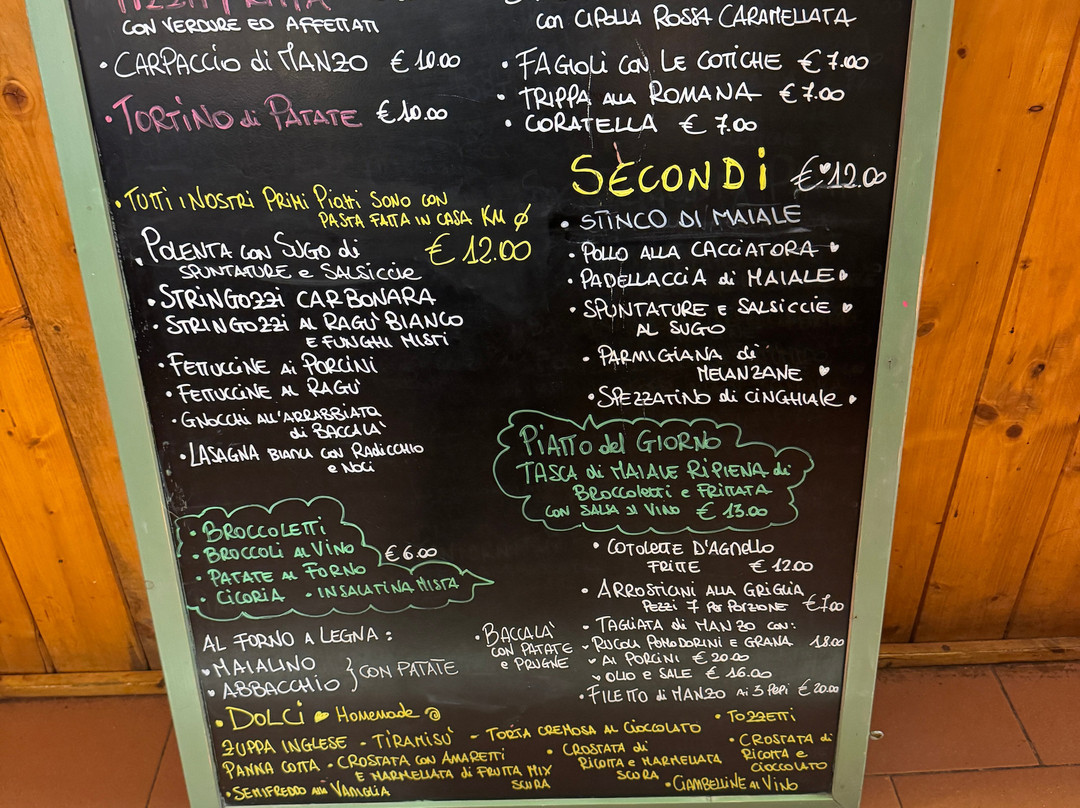 CON VERDURE ED AFFETTATI
• CARPACCIO di MANZO € 10.00
• TORTINO di PATATE €10.00
con CIPOLLA ROSSA CARAMELLATA
• FAGIOLI CON LE COTICHE € 7.00
• TRIPPA ALLA ROMANA € 7.00
• CORATELLA € 7.00
• TUTTI I NOSTRI PRIMI PIATTI SONO CON
PASTA FATTA IN CASA KM Ø
€ 12.00
• POLENTA CON SUGO di
SPUNTATURE e SALSICCIE
• STRINGOZZI CARBONARA
• STRINGOZZI AL RAGÙ BIANCO
E FUNGHI MISTI
• FETTUCCINE AI PORCINI
• FETTUCCINE AL RAGÙ
• GNOCCHI ALL'ARRABBIATA
di BACCALÀ
• LASAGNA BIANCA CON RADICCHIO
e NOCI
SECONDI €12.00
• STINCO DI MAIALE
• POLLO ALLA CACCIATORA
• PADELLACCIA di MAIALE
• SPUNTATURE E SALSICCIE
AL SUGO
• PARMIGIANA di
MELANZANE
• SPEZZATINO di CINGHIALE
PIATTO del GIORNO
TASCA di MAIALE RIPIENA di
BROCCOLETTI e FRITTATA
CON SALSA al VINO € 13.00
• BROCCOLETTI
• BROCCOLI AL VINO €6.00
• PATATE AL FORNO
• CICORIA • INSALATINA MISTA
AL FORNO A LEGNA :
MAIALINO
ABBACCHIO } CON PATATE
• BACCALÀ
CON PATATE
e PRUGNE
• COTOLETTE D'AGNELLO
FRITTE € 12.00
• ARROSTICINI ALLA GRIGLIA
PEZZI 7 PER PORZIONE €7.00
• TAGLIATA di MANZO CON:
RUCOLA POMODORINI E GRANA 18.00
AI PORCINI € 20.00
OLIO e SALE € 16.00
• FILETTO di MANZO AI 3 PEPI € 20.00
• DOLCI Homemade @
ZUPPA INGLESE - TIRAMISÙ - TORTA CREMOSA AL CIOCCOLATO
PANNA COTTA • CROSTATA CON AMARETTI
E MARMELLATA di FRUTTA MIX
SCURA
• SEMIFREDDO ALLA VANIGLIA
• CROSTATA di
RICOTTA e MARMELLATA
SCURA
• TOZZETTI
• CROSTATA di
RICOTTA e
CIOCCOLATO
• CIAMBELLINE AL VINO